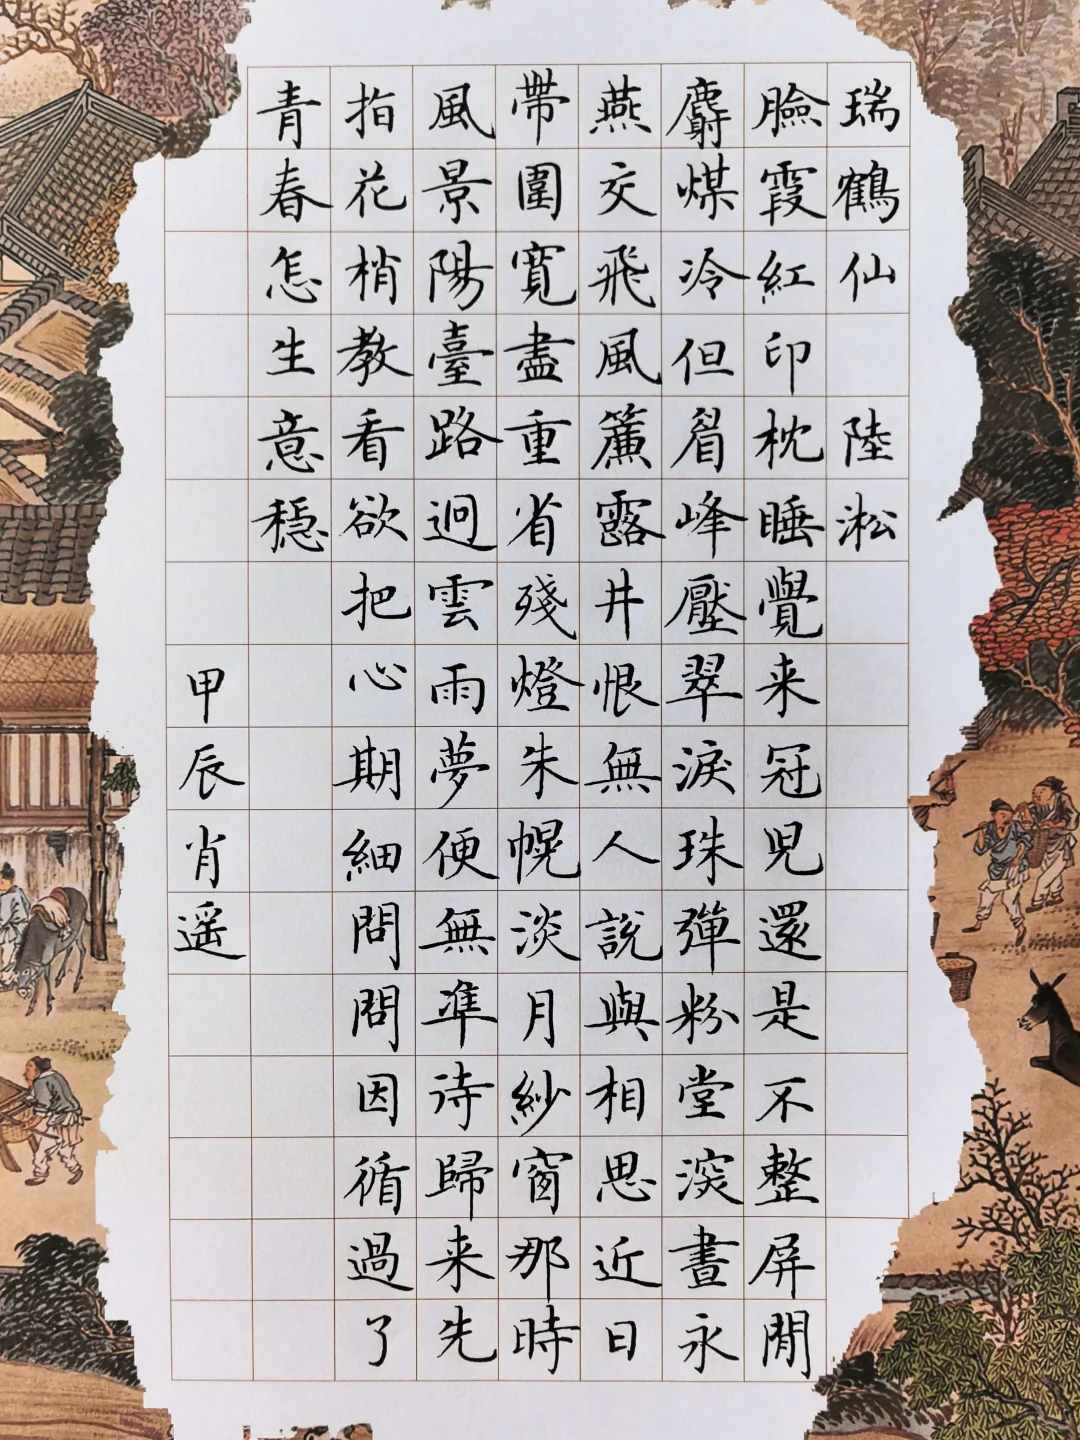 瑞鶴仙 陸淞
臉霞紅印枕睡覺来冠児還是不整屏閒
麝煤冷但眉峰壓翠淚珠彈粉堂深晝永
燕交飛風簾露井恨無人說與相思近日
帶圍寬盡重省殘燈朱幌淡月紗窗那時
風景陽臺路迥雲雨夢便無準待歸来先
指花梢教看欲把心期細問問因循過了
青春怎生意穩
甲辰肖遥